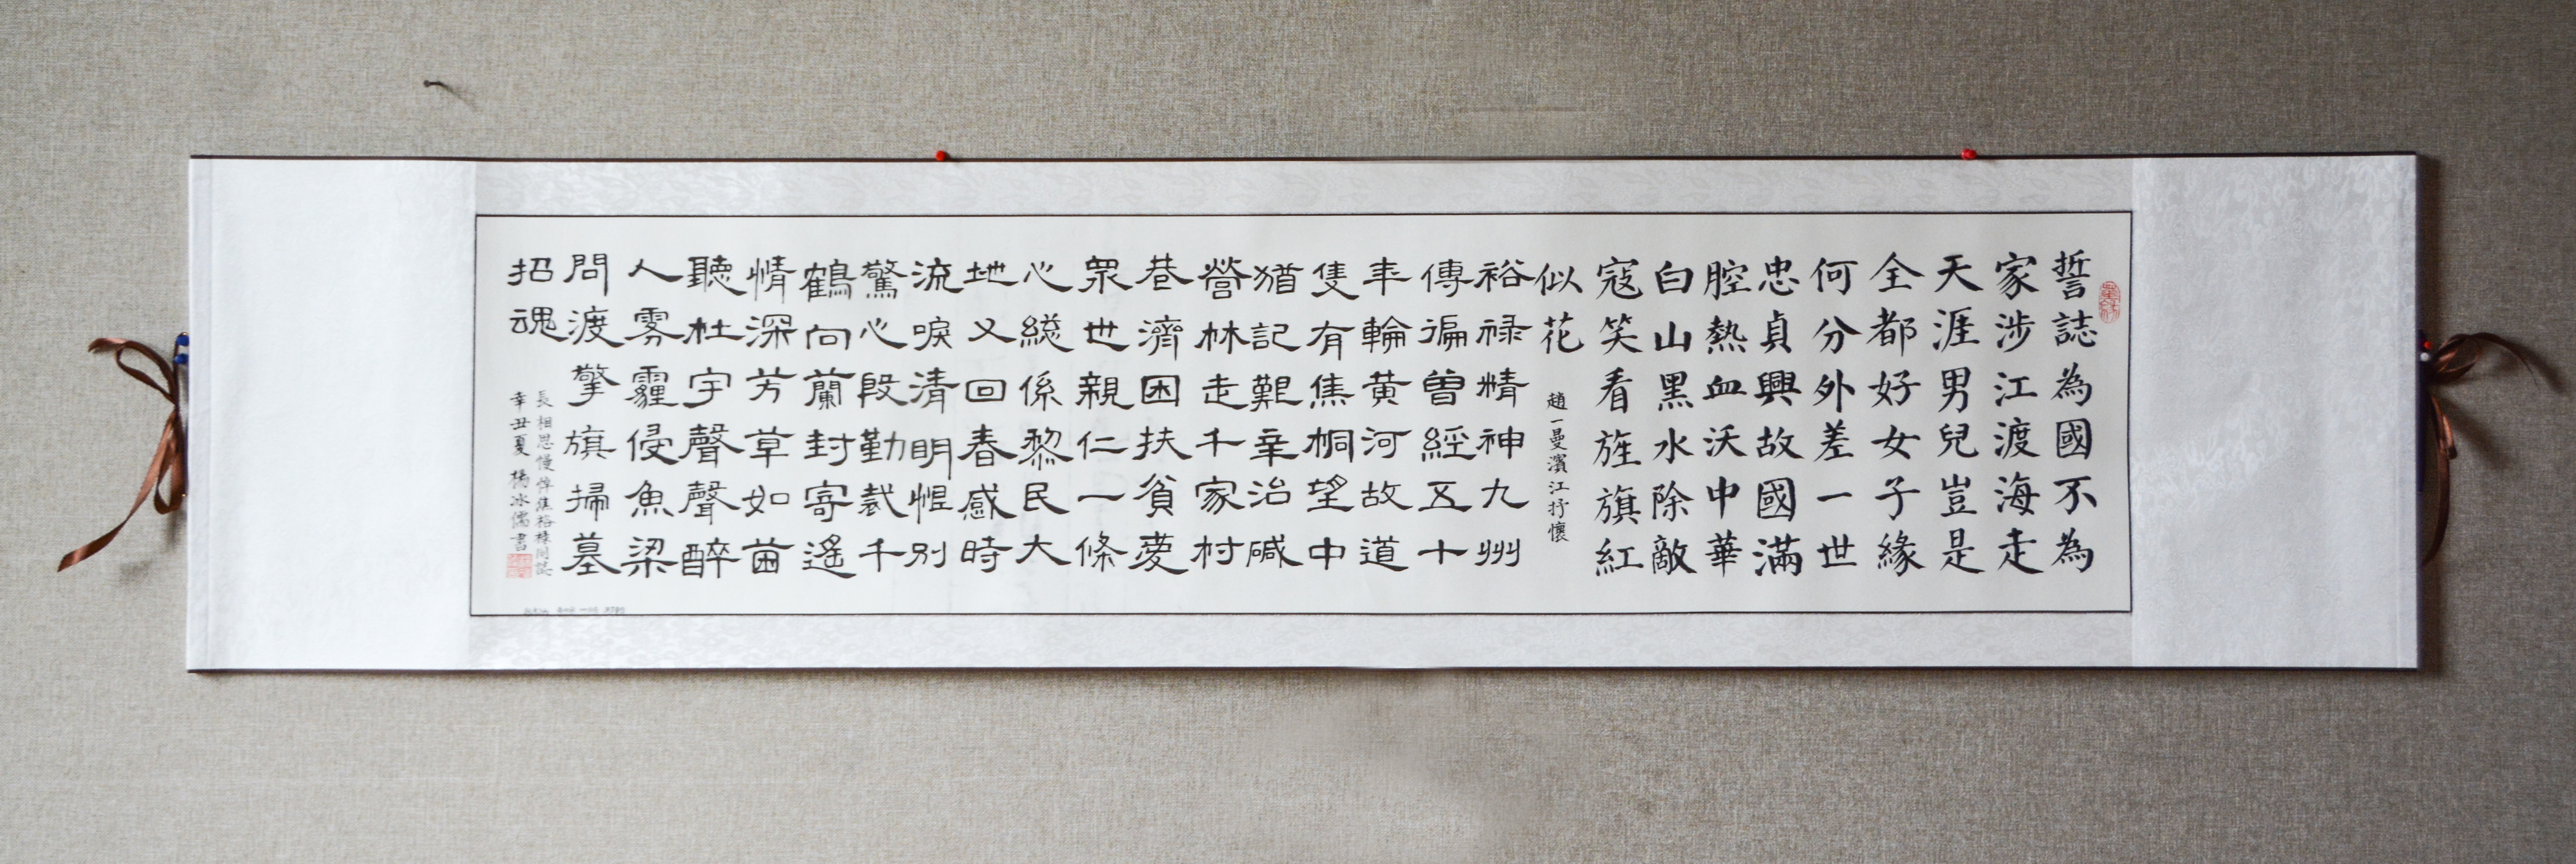 誓誌為國不為
家涉江渡海走
天涯男兒豈是
全都好女子緣
何分外差一世
忠貞興故國滿
腔熱血沃中華
白山黑水除敵
寇笑看旌旗紅
似花
趙一曼濱江抒懷
裕禄精神九州
傳徧曽經五十
年輪黃河故道
隻有焦桐望中
猶記艱辛治碱
營林走千家村
巷濟困扶貧憂
眾世親仁一條
心總係黎民大
地又回春感時
流唳清明恨別
驚心段勤裁千
鶴向蘭封寄遙
情深芳草如茵
聽杜宇聲聲醉
人雾霾侵魚梁
問渡擎旗掃墓
招魂
長相思慢悼焦裕禄同誌
辛丑夏 楊冰儒書